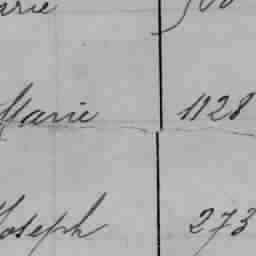 Marie 1128
Joseph 273